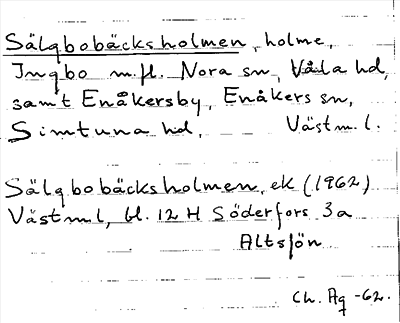 Sälgbobäcksholmen, holme,
Ingbo m.fl. Nora sn, Våla hd,
samt Enåkersby, Enåkers sn,
Simtuna hd, Västm.l.
Sälgbobäcksholmen, ek (1962)
Västml, bl. 12 H Söderfors 3a
Altsjön
Ch. Ag -62.